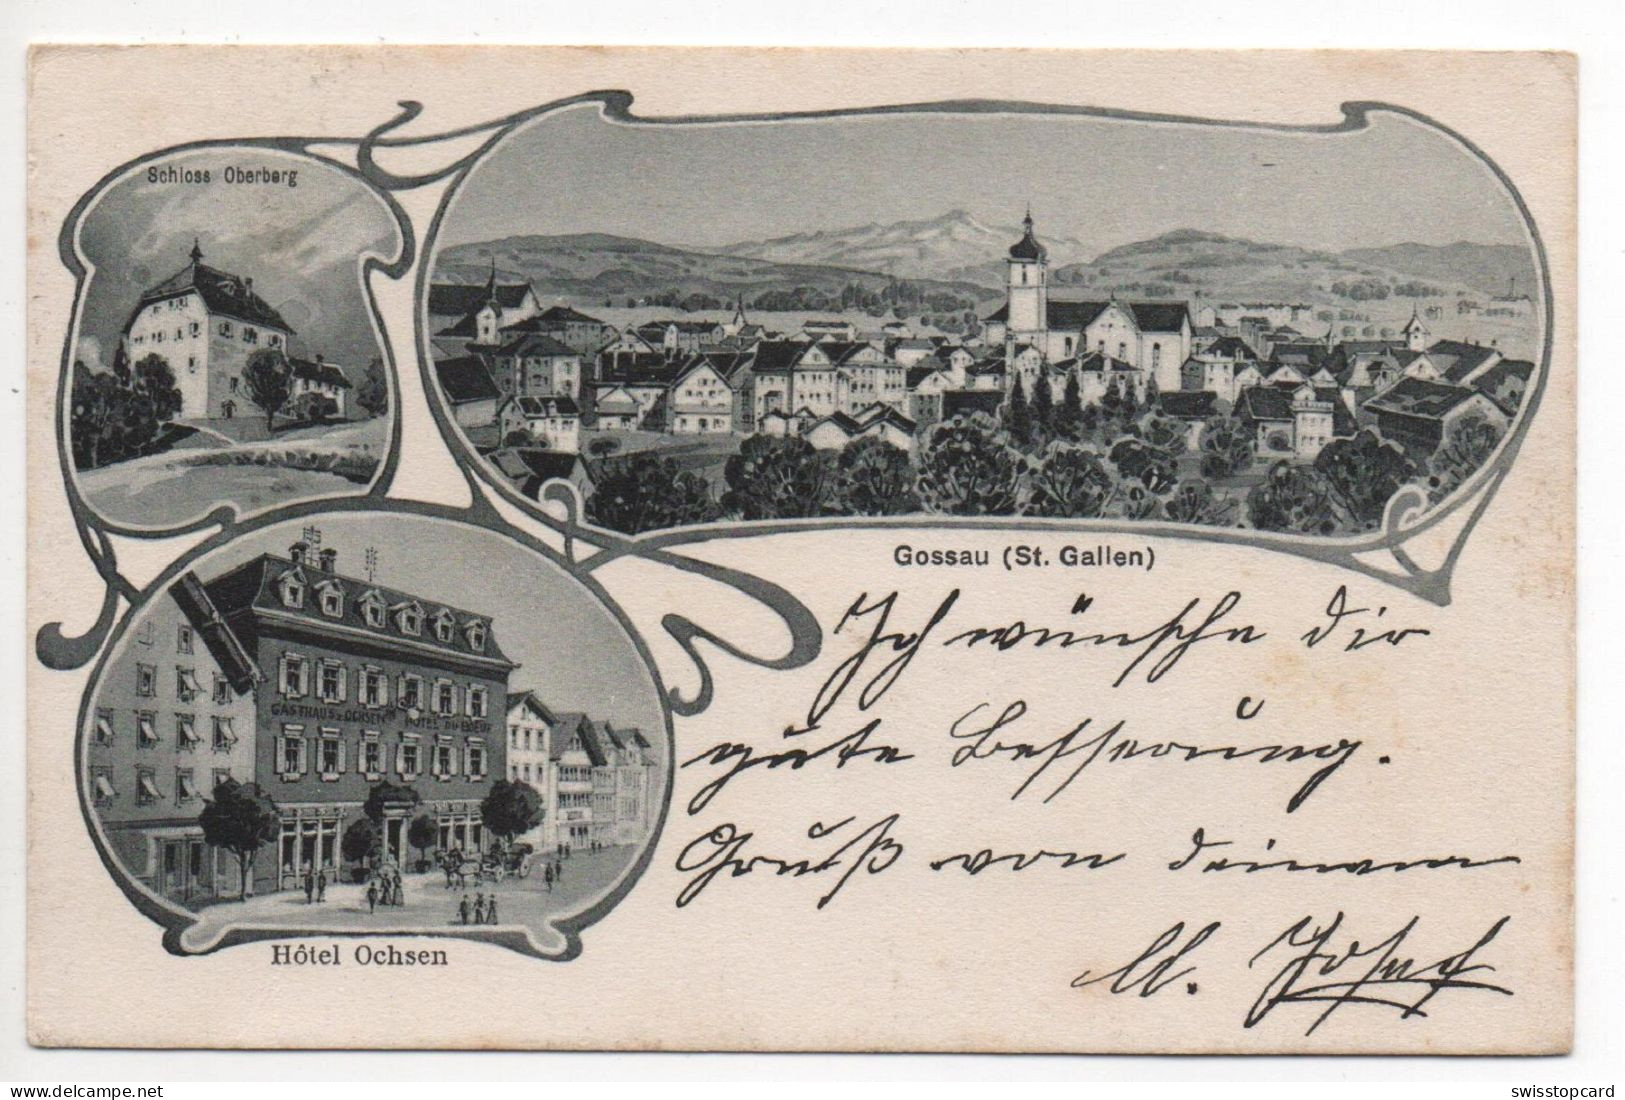 Schloss Oberberg
Gossau (St. Gallen)
GASTHAUS z. OCHSEN
HÔTEL DU BOEUF
Hôtel Ochsen
Ich wünsche dir
gute Besserung.
Gruß von deinem
Josef
delcampe.net
swisstopcard